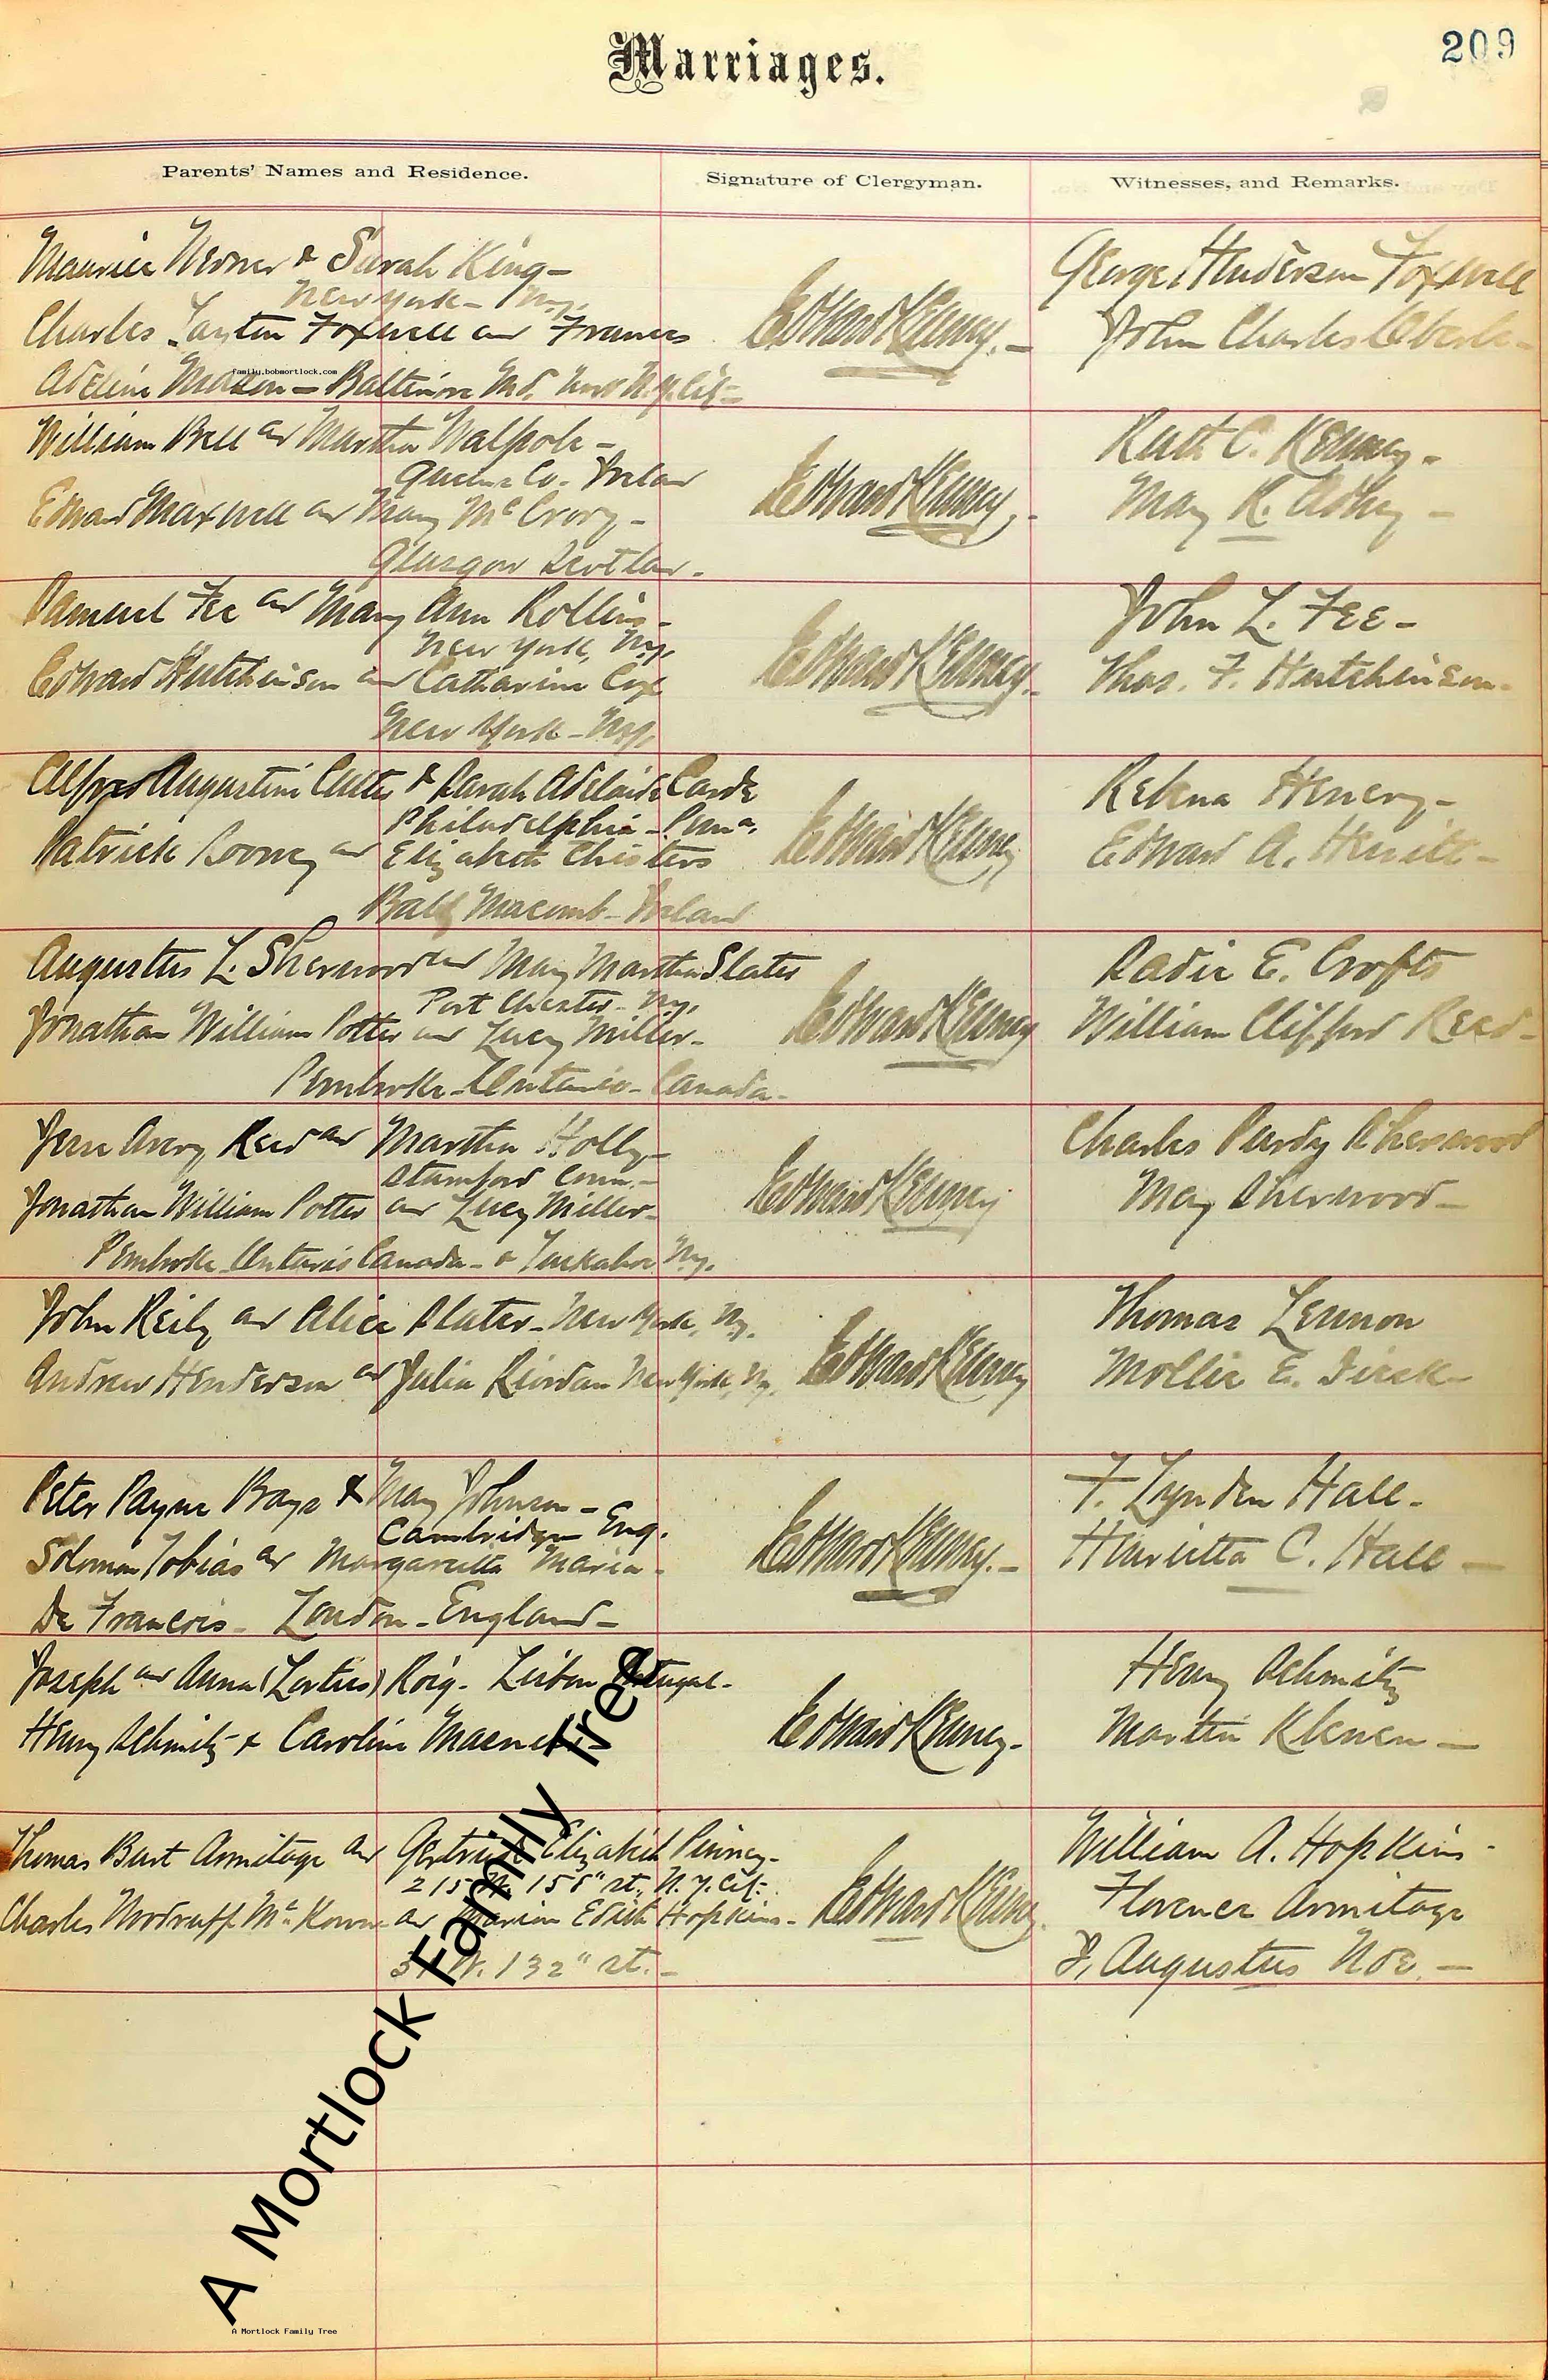 209
Marriages.
Parents' Names and Residence.
Signature of Clergyman.
Witnesses, and Remarks.
Maurice & Sarah King-
New York - N.y.
Charles Foxwell and Frances
Adeline - Baltimore Md.
family.bobmortlock.com
Edward Kenney. -
George Henderson Foxwell
John Charles
William Bell and Martha Walpole -
Queens Co. Ireland
Edward Maxwell and Mary McCrory -
Glasgow Scotland.
Edward Kenney. -
Ruth C. Kenney -
May K. -
Samuel Fee and Mary Ann Rollins -
New York, N.y.
Edward Hutchinson and Catharine Cox
New York - N.y.
Edward Kenney.
John L. Fee -
Thos. F. Hutchinson -
Alfred Augustine & Sarah Adelaide
Philadelphia - Penna.
Patrick Rooney and Elizabeth
Macomb - Ireland
Edward Kenney
Henery -
Edward A. Hewitt -
Augustus L. Sherwood and Mary Martha Slater
Port Chester - N.y.
Jonathan William Potter and Lucy Miller -
Pembroke - Ontario - Canada -
Edward Kenney
Sadie E. Crofts
William Clifford Reed -
Avery Reed and Martha Holly -
Stamford Conn. -
Jonathan William Potter and Lucy Miller -
Pembroke Ontario Canada - & Tuckahoe N.y.
Edward Kenney
Charles Purdy Sherwood
May Sherwood -
John Reily and Alice Slater - New York, N.y.
Andrew Henderson and Julia Riordan New York, N.y.
Edward Kenney
Thomas Lennon
Mollie E. Dirck -
Peter Payne Bays & Mary Johnson -
Cambridge Eng.
Solomon Tobias and Margaretta Maria -
De Francois - London - England -
Edward Kenney. -
F. Lynden Hall -
Henrietta C. Hall -
Joseph and Anna Roig - Lisbon Portugal -
Henry Schmitz & Caroline
Edward Kenney -
Henry Schmitz
Martin -
Thomas Burt Armitage and Gertrude Elizabeth Pinney -
215 W. St., N.Y. City.
Charles Woodruff McKown and Marion Edith Hopkins -
W. 132" st. -
Edward Kenney
William A. Hopkins -
Florence Armitage
J. Augustus Noe -
A Mortlock Family Tree
A Mortlock Family Tree